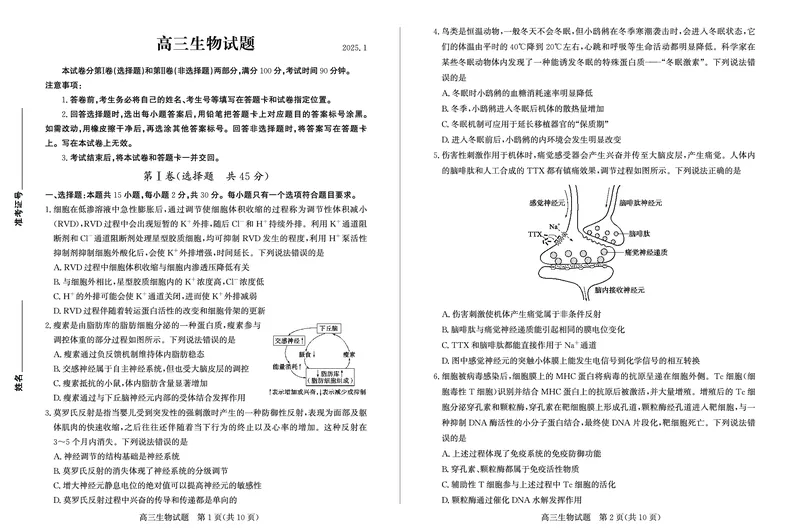 高三生物试题
2025.1
本试卷分第Ⅰ卷(选择题)和第Ⅱ卷(非选择题)两部分,满分100分,考试时间90分钟。
注意事项:
1.答卷前,考生务必将自己的姓名、考生号等填写在答题卡和试卷指定位置。
2.回答选择题时,选出每小题答案后,用铅笔把答题卡上对应题目的答案标号涂黑。
如需改动,用橡皮擦干净后,再选涂其他答案标号。回答非选择题时,将答案写在答题卡
上。写在本试卷上无效。
3.考试结束后,将本试卷和答题卡一并交回。
第Ⅰ卷(选择题 共45分)
一、选择题:本题共15小题,每小题2分,共30分。每小题只有一个选项符合题目要求。
1.细胞在低渗溶液中急性膨胀后,通过调节使细胞体积收缩的过程称为调节性体积减小
(RVD),RVD过程中会出现短暂的K⁺外排,随后Cl⁻和H⁺持续外排。利用K⁺通道阻
断剂和Cl⁻通道阻断剂处理星型胶质细胞,均可抑制RVD发生的程度,利用H⁺泵活性
抑制剂抑制细胞外酸化后,会使K⁺外排增强,时间延长。下列说法错误的是
A.RVD过程中细胞体积收缩与细胞内渗透压降低有关
B.与细胞外相比,星型胶质细胞内的K⁺浓度高,Cl⁻浓度低
C.H⁺的外排可能会使K⁺通道关闭,进而使K⁺外排减弱
D.RVD过程伴随着转运蛋白活性的改变和细胞骨架的更新
2.瘦素是由脂肪库的脂肪细胞分泌的一种蛋白质,瘦素参与
调控体重的部分过程如图所示。下列说法错误的是
A.瘦素通过负反馈机制维持体内脂肪稳态
B.交感神经属于自主神经系统,但也受大脑皮层的调控
C.瘦素抵抗的小鼠,体内脂肪含量显著增加
D.瘦素通过与下丘脑神经元内部的受体结合发挥作用
下丘脑
交感神经↑
摄食↓
瘦素
能量损耗↑
↓脂肪库↑
(脂肪细胞组成)
↑表示增加或兴奋,↓表示减少或抑制
3.莫罗氏反射是指当婴儿受到突发性的强刺激时产生的一种防御性反射,表现为面部及躯
体肌肉的快速收缩,之后往往还伴随着当下行为的终止以及心率的增加。这种反射在
3~5个月内消失。下列说法错误的是
A.神经调节的结构基础是神经系统
B.莫罗氏反射的消失体现了神经系统的分级调节
C.增大神经元静息电位的绝对值可以提高神经元的敏感性
D.莫罗氏反射过程中兴奋的传导和传递都是单向的
高三生物试题 第1页(共10页)
准考证号
姓名
4.鸟类是恒温动物,一般冬天不会冬眠,但小鸱鸺在冬季寒潮袭击时,会进入冬眠状态,它
们的体温由平时的40℃降到20℃左右,心跳和呼吸等生命活动都明显降低。科学家在
某些冬眠动物体内发现了一种能诱发冬眠的特殊蛋白质——“冬眠激素”。下列说法错
误的是
A.冬眠时小鸱鸺的血糖消耗速率明显降低
B.冬季,小鸱鸺进入冬眠后机体的散热量增加
C.冬眠机制可应用于延长移植器官的“保质期”
D.进入冬眠前后,小鸱鸺的内环境会发生明显改变
5.伤害性刺激作用于机体时,痛觉感受器会产生兴奋并传至大脑皮层,产生痛觉。人体内
的脑啡肽和人工合成的TTX都有镇痛效果,调节过程如图所示。下列说法正确的是
感觉神经元
脑啡肽神经元
Na⁺
TTX
脑啡肽
痛觉神经递质
脑内接收神经元
A.伤害刺激使机体产生痛觉属于非条件反射
B.脑啡肽与痛觉神经递质能引起相同的膜电位变化
C.TTX和脑啡肽都能直接作用于Na⁺通道
D.图中感觉神经元的突触小体膜上能发生电信号到化学信号的相互转换
6.细胞被病毒感染后,细胞膜上的MHC蛋白将病毒的抗原呈递在细胞外侧。Tc细胞(细
胞毒性T细胞)识别并结合MHC蛋白上的抗原后被激活,并大量增殖。增殖后的Tc细
胞分泌穿孔素和颗粒酶,穿孔素在靶细胞膜上形成孔道,颗粒酶经孔道进入靶细胞,与一
种抑制DNA酶活性的小分子蛋白结合,最终使DNA片段化,靶细胞死亡。下列说法错
误的是
A.上述过程体现了免疫系统的免疫防御功能
B.穿孔素、颗粒酶都属于免疫活性物质
C.辅助性T细胞参与上述过程中Tc细胞的活化
D.颗粒酶通过催化DNA水解发挥作用
高三生物试题 第2页(共10页)